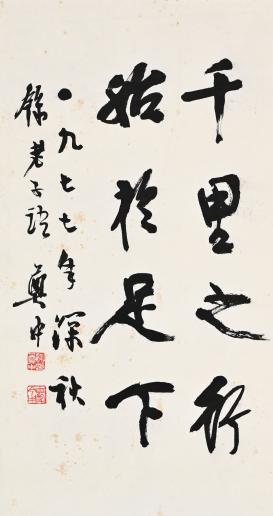 千里之行
始於足下
一九七七年深秋
錄老子語 奠中